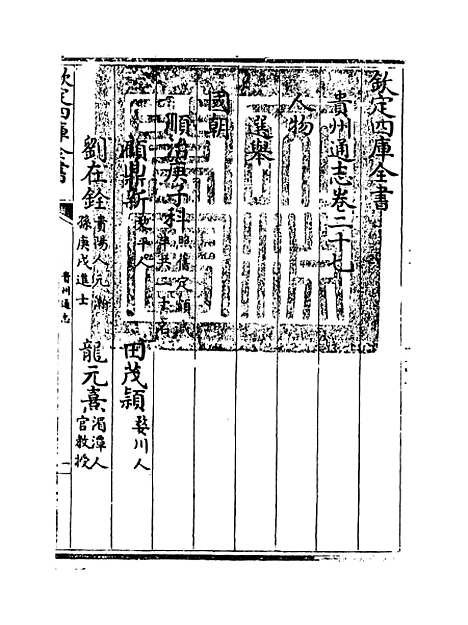 欽定四庫全書
貴州通志卷二十七
人物
選舉
國朝
順治庚子科
顧鼎新
平人
田茂穎
婺川人
劉在銓
貴陽人元
孫庚戌進士
龍元熹
湄潭人
官教授
欽定四庫全書
貴州通志
一